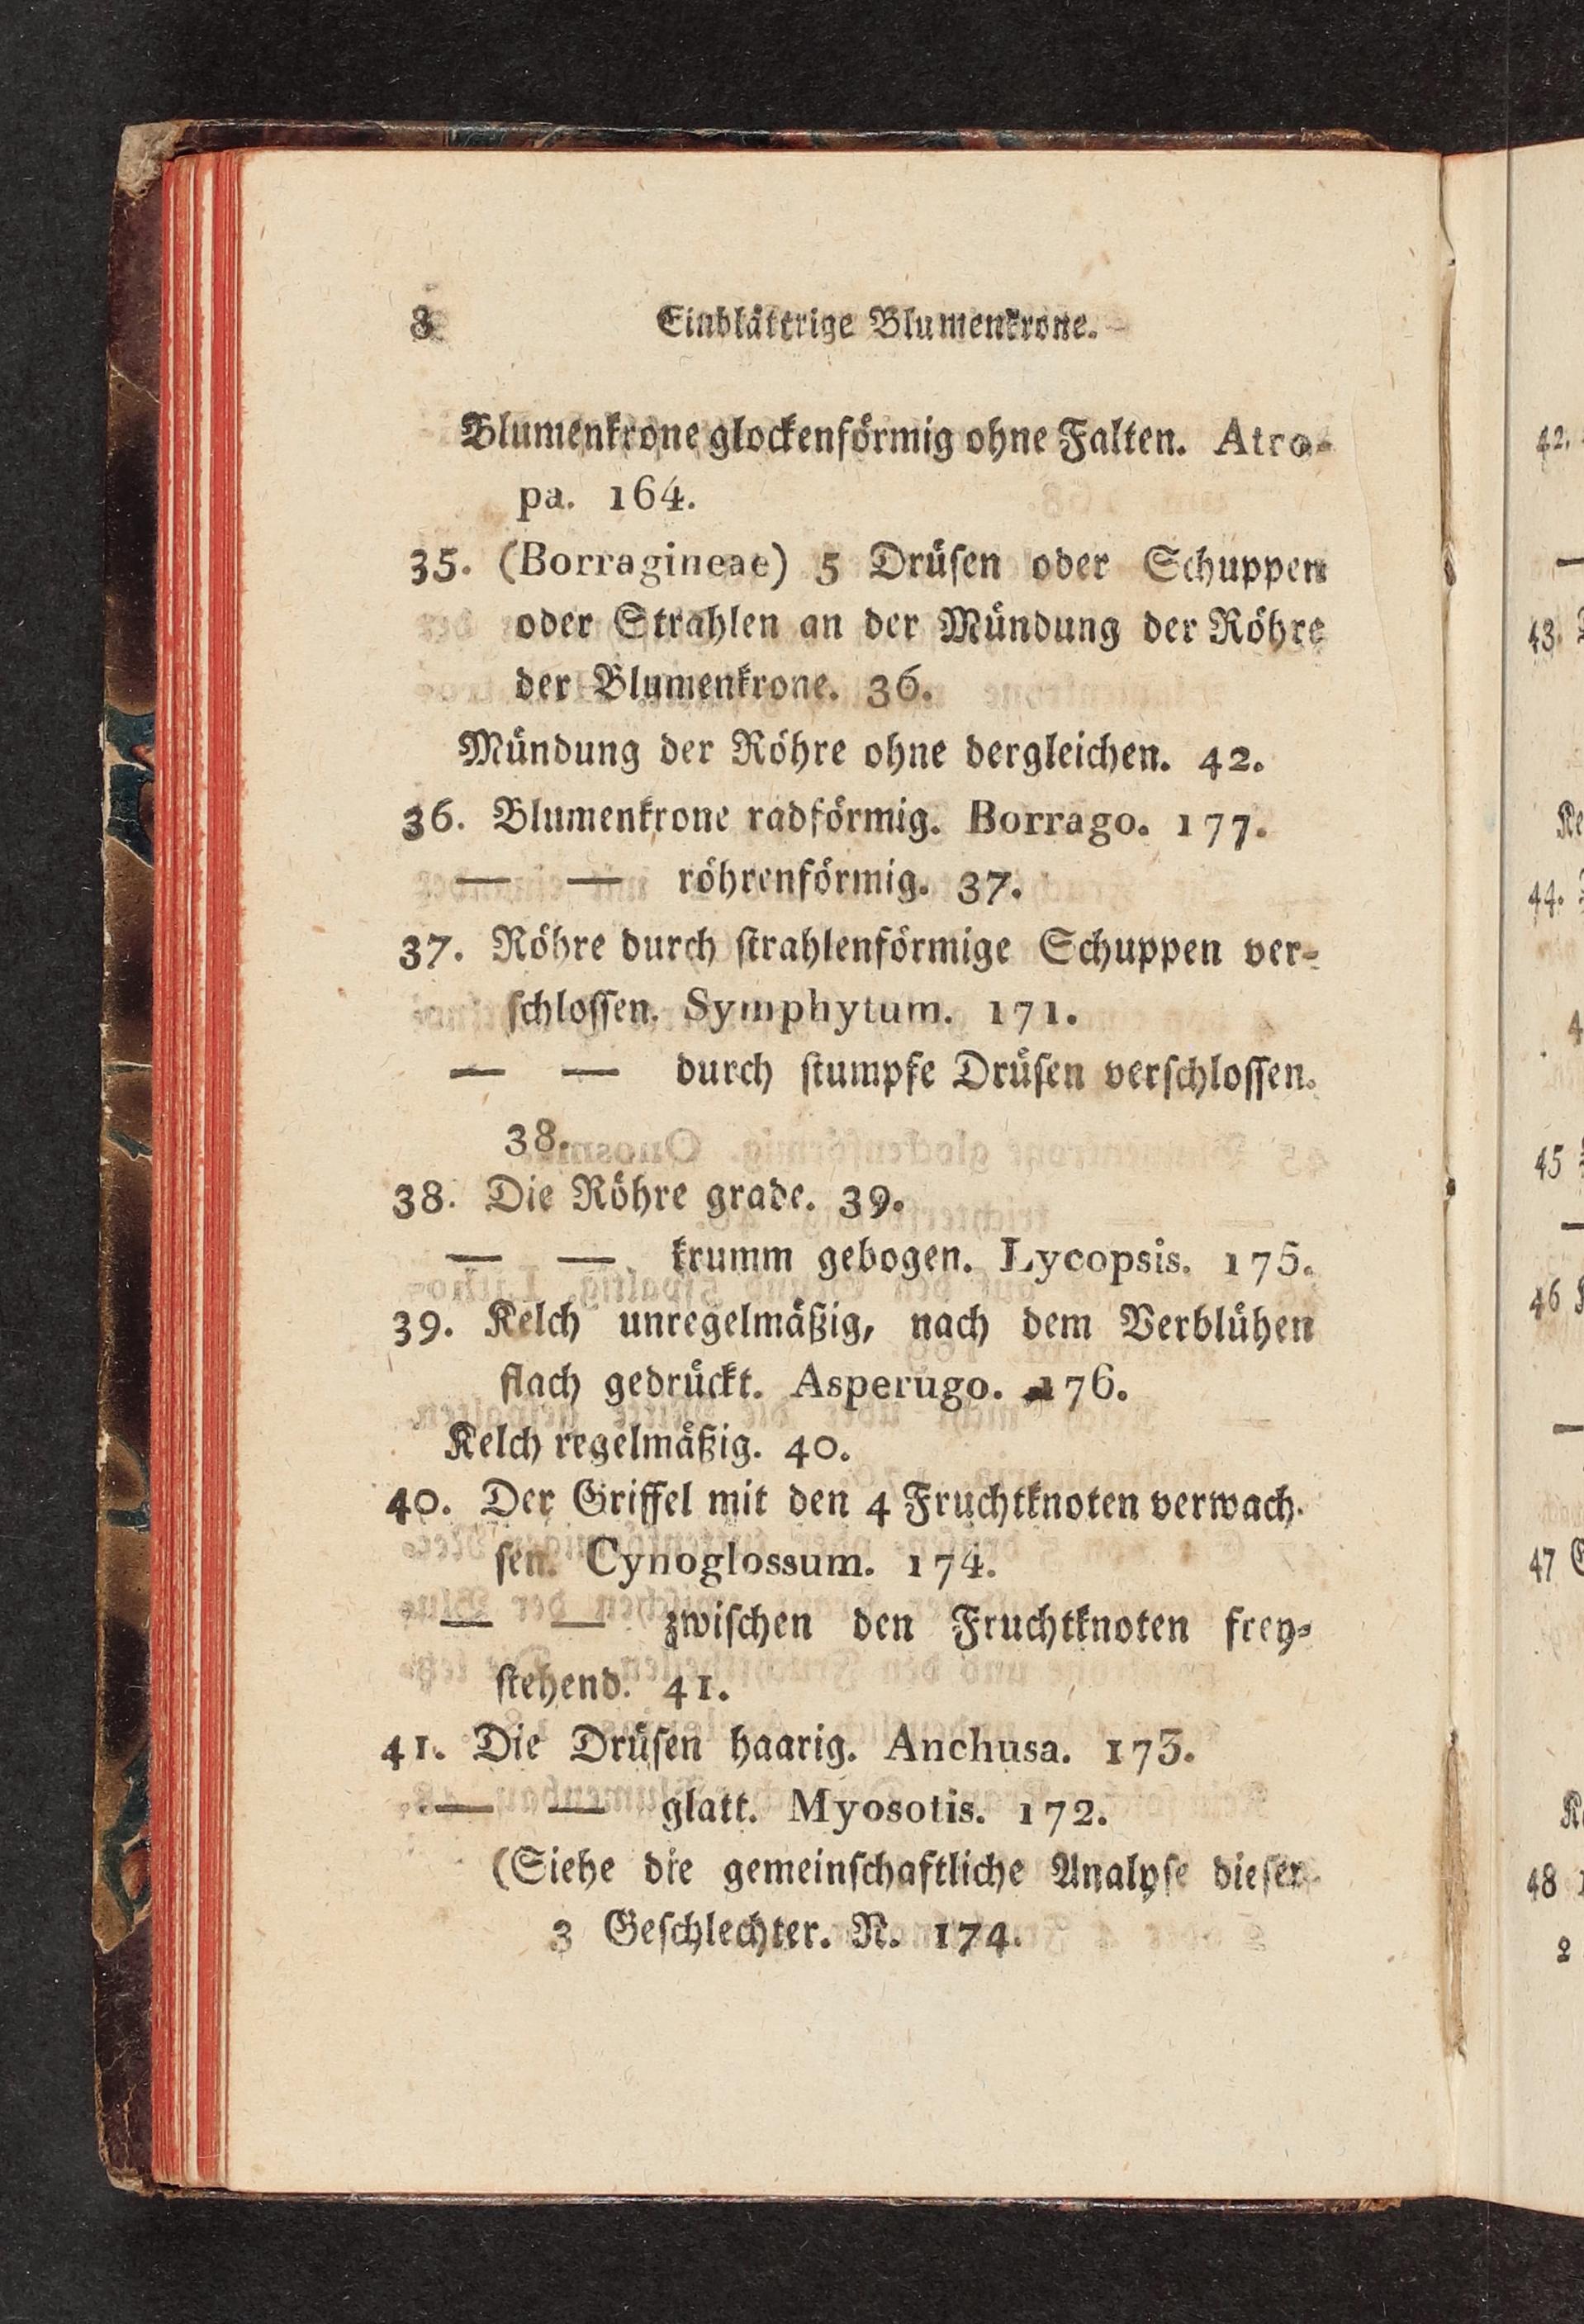 8 Einblättrige Blumenkrone.
Blumenkrone glockenförmig ohne Falten. Atro-
pa. 164.
35. (Borragineae) 5 Drüſen oder Schuppen
oder Strahlen an der Mündung der Röhre
der Blumenkrone. 36.
Mündung der Röhre ohne dergleichen. 42.
36. Blumenkrone radförmig. Borrago. 177.
— — röhrenförmig. 37.
37. Röhre durch ſtrahlenförmige Schuppen ver-
ſchloſſen. Symphytum. 171.
— — durch ſtumpfe Drüſen verſchloſſen.
38.
38. Die Röhre grade. 39.
— — krumm gebogen. Lycopsis. 175.
39. Kelch unregelmäßig, nach dem Verblühen
flach gedrückt. Asperugo. 176.
Kelch regelmäßig. 40.
40. Der Griffel mit den 4 Fruchtknoten verwach-
ſen. Cynoglossum. 174.
— — zwiſchen den Fruchtknoten frey-
ſtehend. 41.
41. Die Drüſen haarig. Anchusa. 173.
— — glatt. Myosotis. 172.
(Siehe die gemeinſchaftliche Analyſe dieſer
3 Geſchlechter. N. 174.
42.
43.
44.
45
46
47
48
2